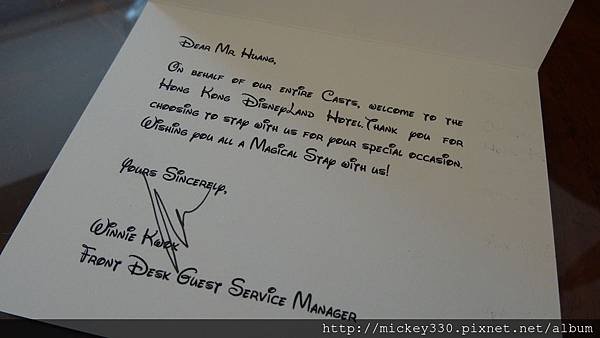 Dear Mr. Huang,
On behalf of our entire Casts, welcome to the
Hong Kong Disneyland Hotel. Thank you for
choosing to stay with us for your special occasion.
Wishing you all a Magical Stay with us!
Yours Sincerely,
Winnie Kwok
Front Desk Guest Service Manager
http://mickey330.pixnet.net/album